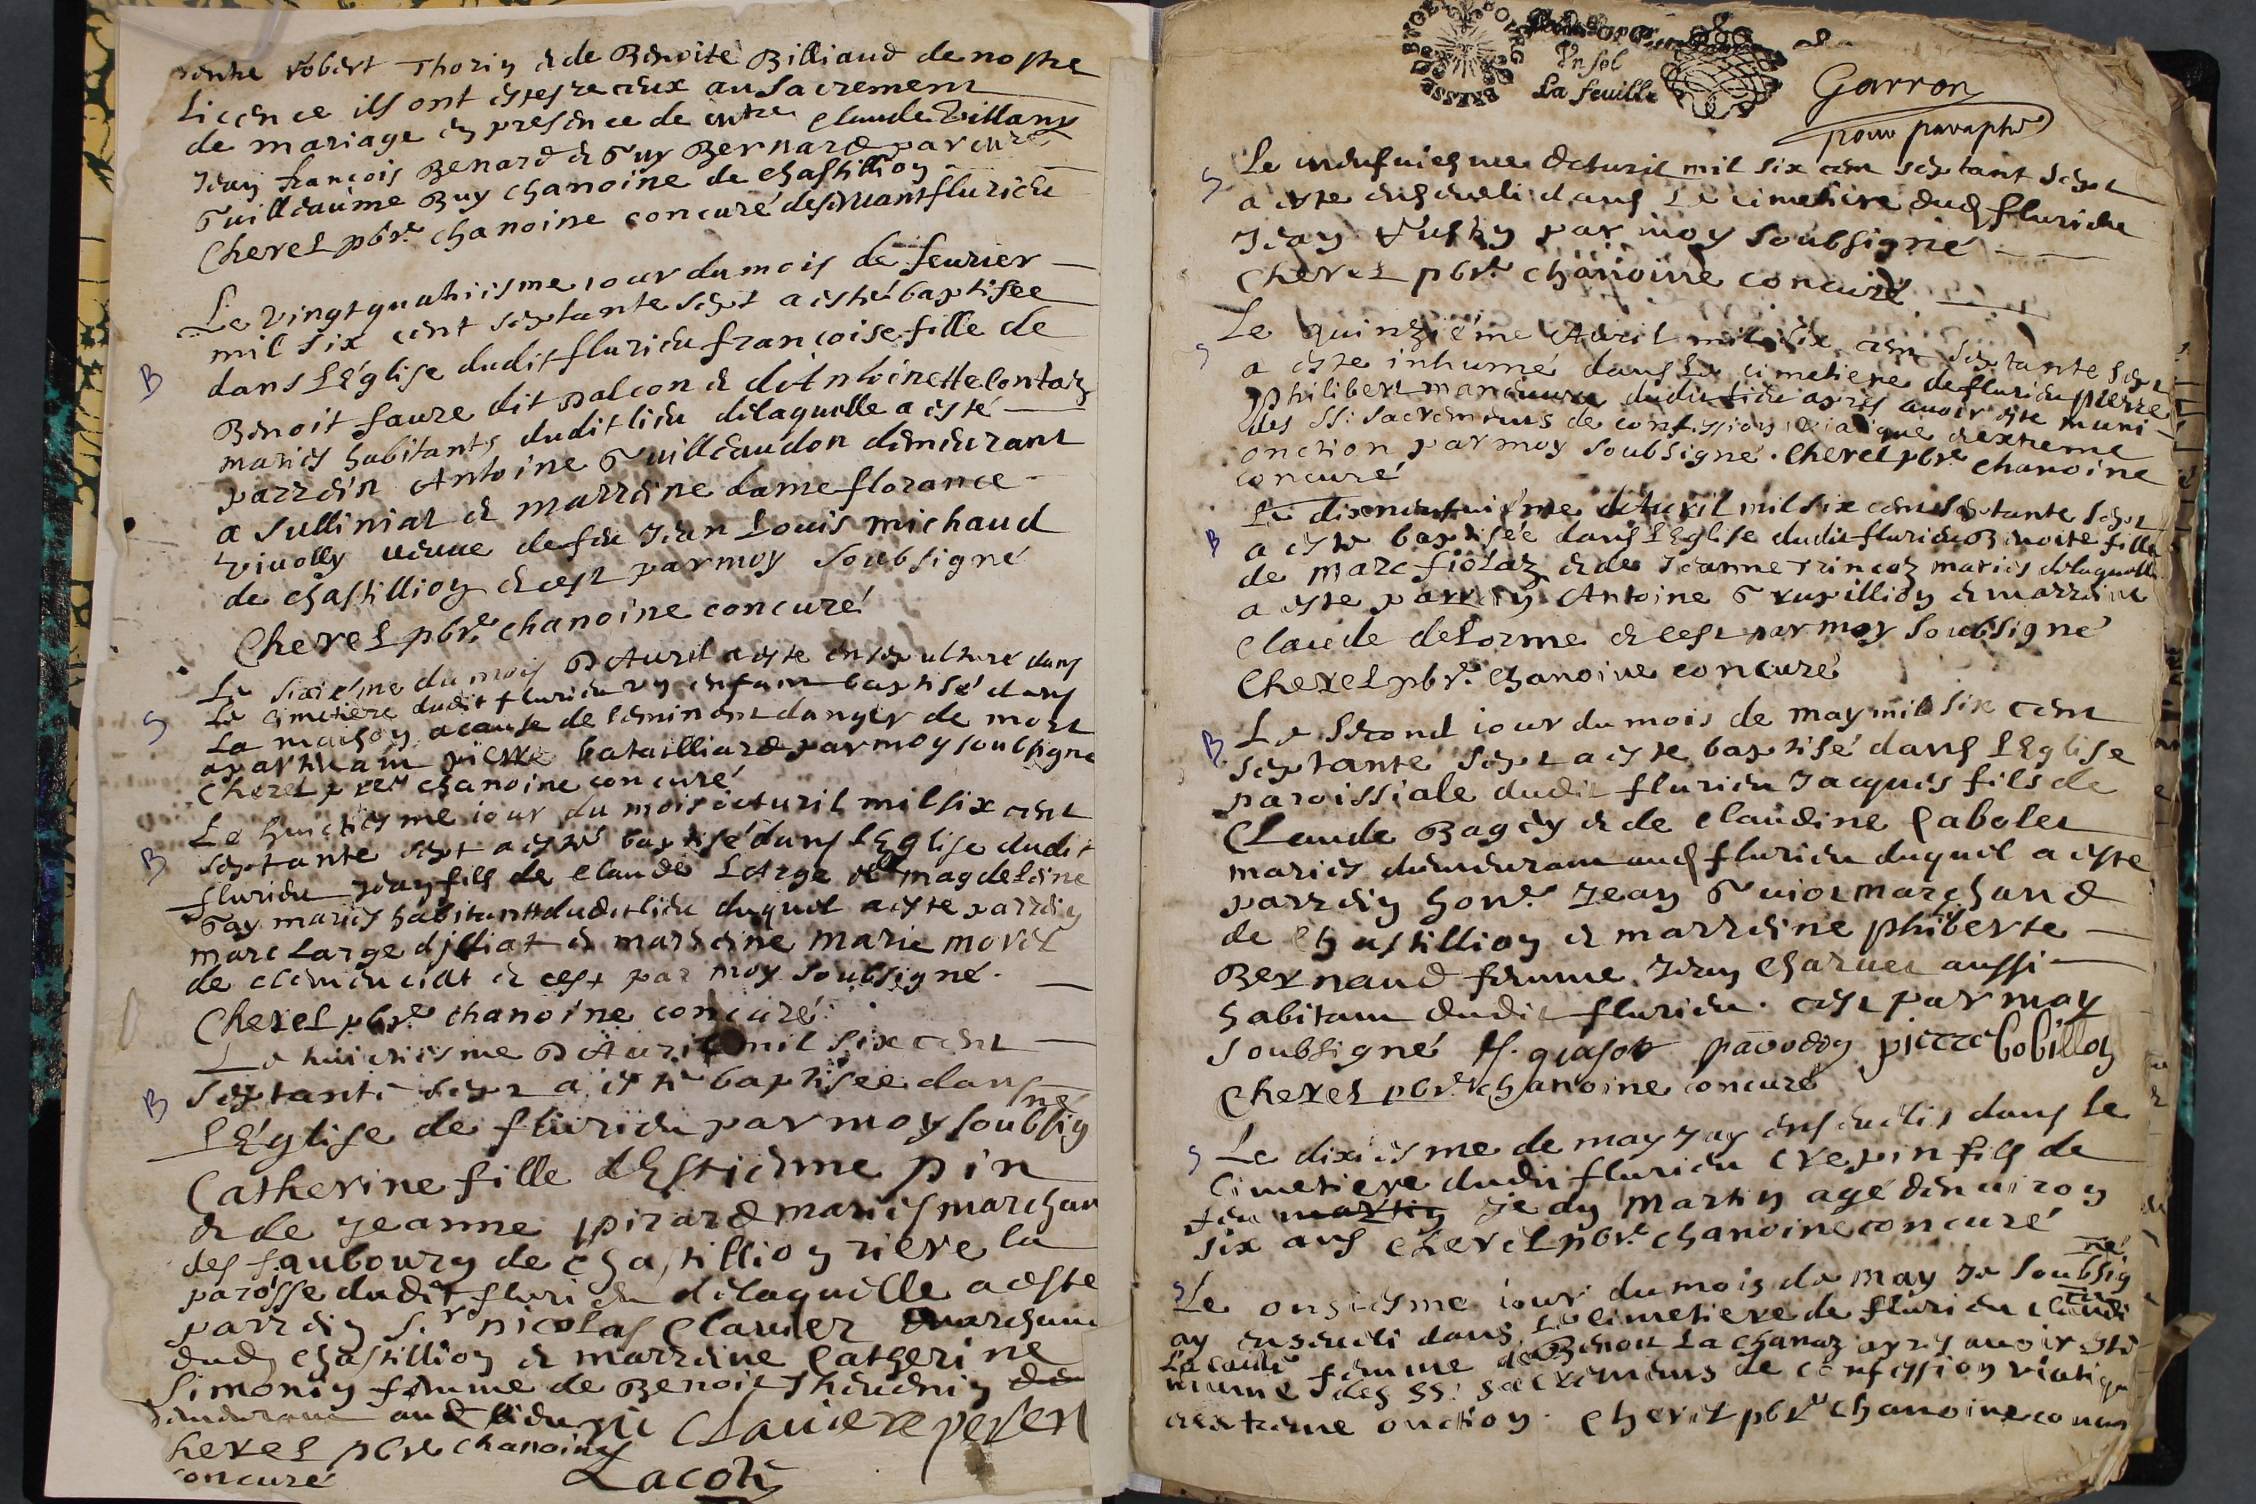 robert Thorin & de Benoite Billiaud de nostre
Licence ils ont esté receux au Sacrement
de mariage en presence de claude Villany
Jean françois Benard & Guy Bernard par
Guilleaume Buy chanoine de chastillion
Cherel pbre chanoine concuré deservant flurieu
Le vingt quatriesme iour du mois de feurier
mil six cent septante sept a esté baptisee
dans L'Église dudit flurieu françoise fille de
Benoit faure dit palcon & d'Antoinette contaz
mariés habitants dudit lieu delaquelle a esté
parrein Antoine Guilleaudon demeurant
a Sulliniat & marreine dame florance
rivolly veuue de feu Jean Louis michaud
de chastillion & cest par moy soubsigné
Cherel pbre chanoine concuré
Le sixiesme du mois D'Auril a este ensepulturé dans
Le cimetiere dudit flurieu vn enfant baptisé dans
La maison a cause de l'eminent danger de mort
apartenant pierre batailliard par moy soubsigné
Cherel pbre chanoine concuré
Le huictiesme iour du mois d'Auril mil six cent
septante sept a esté baptisé dans L'Eglise dudit
flurieu Jean fils de claude LArge & magdeleine
Gay mariés habitants dudit lieu duquel a esté parrein
marc Large & marreine marie morel
de clemenciat & cest par moy soubsigné.
Cherel pbre chanoine concuré.
Le huictiesme D'Auril mil six cent
septante sept a esté baptisee dans
L'Église de flurieu par moy soubsigné
Catherine fille d'Estienne pin
& de Jeanne pirard mariés marchan
des faubourg de chastillion riere la
parosse dudit flurieu delaquelle a este
parrein Sr nicolas Clauier marchand
dud chastillion & marreine Catherine
Simonin femme de Benoit Theuenin
demeurant aud lieu Clauiere
Cherel pbre chanoine
concuré Lacoté
Un sol
La feuille
Garron
pour paraphe
Le d'Auril mil six cent septant sept
a este enseueli dans Le cimetiere dud flurieu
Jean par moy Soubsigné
Cherel pbre chanoine concuré
Le quinziéme Auril mil six cent septante sept
a este inhumé dans Le cimetiere de flurieu pierre
philibert dudit lieu apres auoir este muni
des SS: Sacrements de confession viatique & extreme
onction par moy soubsigné. Cherel pbre chanoine
concuré
Le dixneufuiéme d'Auril mil six cent septante sept
a esté baptisée dans L'Eglise dudit flurieu Benoite fille
de marc fiolaz & de Jeanne Trincoz mariés delaquelle
a este parrein Antoine Grupillion & marreine
Claude deLorme & cest par moy soubsigné
Cherel pbre chanoine concuré
Le second iour du mois de may mil six cent
septante sept a este baptisé dans L'Eglise
paroissiale dudit flurieu Jacques fils de
CLaude Bagey & de claudine Cabolet
mariés demeurant aud flurieu duquel a este
parrein hon. Jean Guiot marchand
de chastillion & marreine phiberte
Bernaud femme Jean Charuet aussi
habitant dudit flurieu. cest par moy
soubsigné pierre bobillon
Cherel pbre chanoine concuré
Le dixiesme de may J'ay enseueli dans le
Cimetiere dudit flurieu crepin fils de
feu martin Jean Martin agé d'enuiron
six ans Cherel pbre chanoine concuré
Le onziesme iour du mois de may Je soubsigné
ay enseueli dans Le cimetiere de flurieu
femme de Benoit La chanaz apres auoir esté
munie des SS: sacrements de confession viatique
& extreme onction. Cherel pbre chanoine concuré